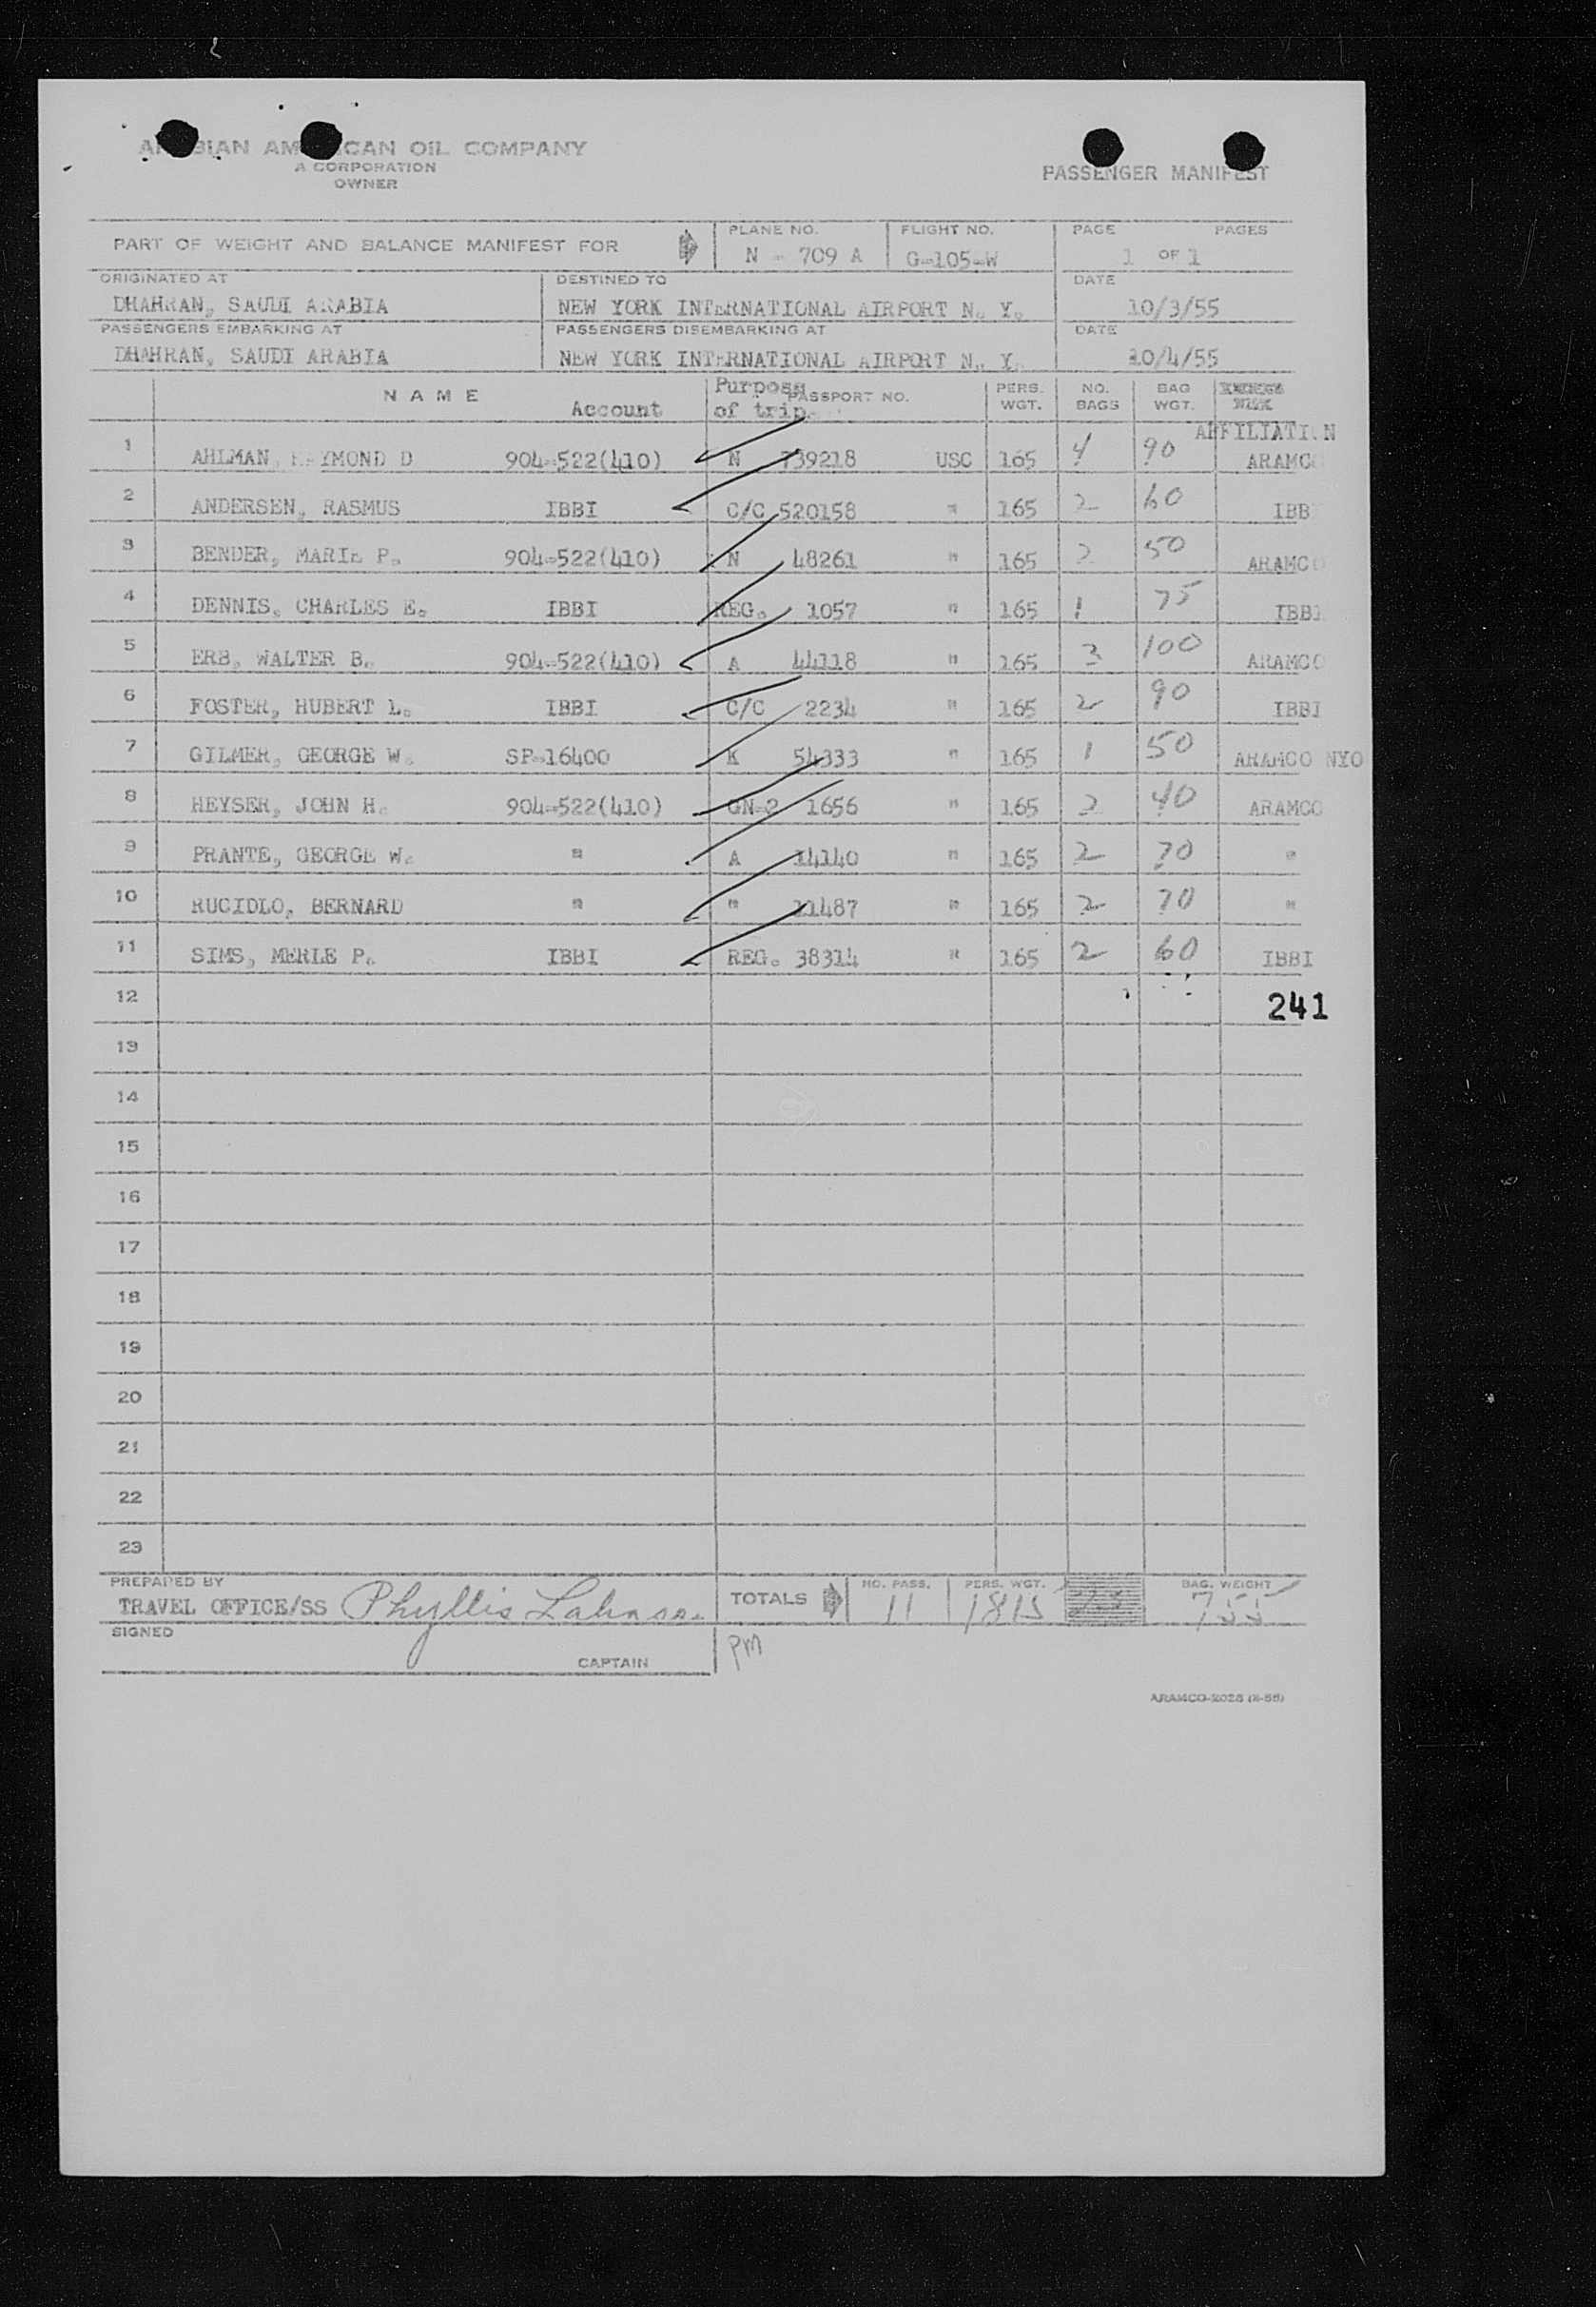 ARABIAN AMERICAN OIL COMPANY
A CORPORATION
OWNER
PASSENGER MANIFEST
PART OF WEIGHT AND BALANCE MANIFEST FOR
PLANE NO. FLIGHT NO. PAGE PAGES
N - 709 A G-105-W 1 OF 1
ORIGINATED AT DESTINED TO DATE
DHAHRAN, SAUDI ARABIA NEW YORK INTERNATIONAL AIRPORT N. Y. 10/3/55
PASSENGERS EMBARKING AT PASSENGERS DISEMBARKING AT DATE
DHAHRAN, SAUDI ARABIA NEW YORK INTERNATIONAL AIRPORT N. Y. 10/4/55
NAME Account Purpose of trip PASSPORT NO. PERS. WGT. NO. BAGS BAG WGT.
AFFILIATI.N
1 AHLMAN, RAYMOND D 904-522(410) N 739218 USC 165 4 90 ARAMCO
2 ANDERSEN, RASMUS IBBI C/C 520158 " 165 2 60 IBB
3 BENDER, MARIE P. 904-522(410) N 48261 " 165 2 50 ARAMCO
4 DENNIS. CHARLES E. IBBI REG. 1057 " 165 1 75 IBBI
5 ERB, WALTER B. 904-522(410) A 44118 " 165 3 100 ARAMCO
6 FOSTER, HUBERT L. IBBI C/C 2234 " 165 2 90 IBBI
7 GILMER, GEORGE W. SP-16400 K 54333 " 165 1 50 ARAMCO NYO
8 HEYSER, JOHN H. 904-522(410) GN-2 1656 " 165 2 40 ARAMCO
9 PRANTE, GEORGE W. " A 14140 " 165 2 70 "
10 RUCIDLO, BERNARD " " 11487 " 165 2 70 "
11 SIMS, MERLE P. IBBI REG. 38314 " 165 2 60 IBBI
12 241
13
14
15
16
17
18
19
20
21
22
23
PREPARED BY TOTALS NO. PASS. PERS. WGT. BAG. WEIGHT
TRAVEL OFFICE/SS Phyllis 11 1815 23 755
SIGNED CAPTAIN PM
ARAMCO-2028 (2-55)